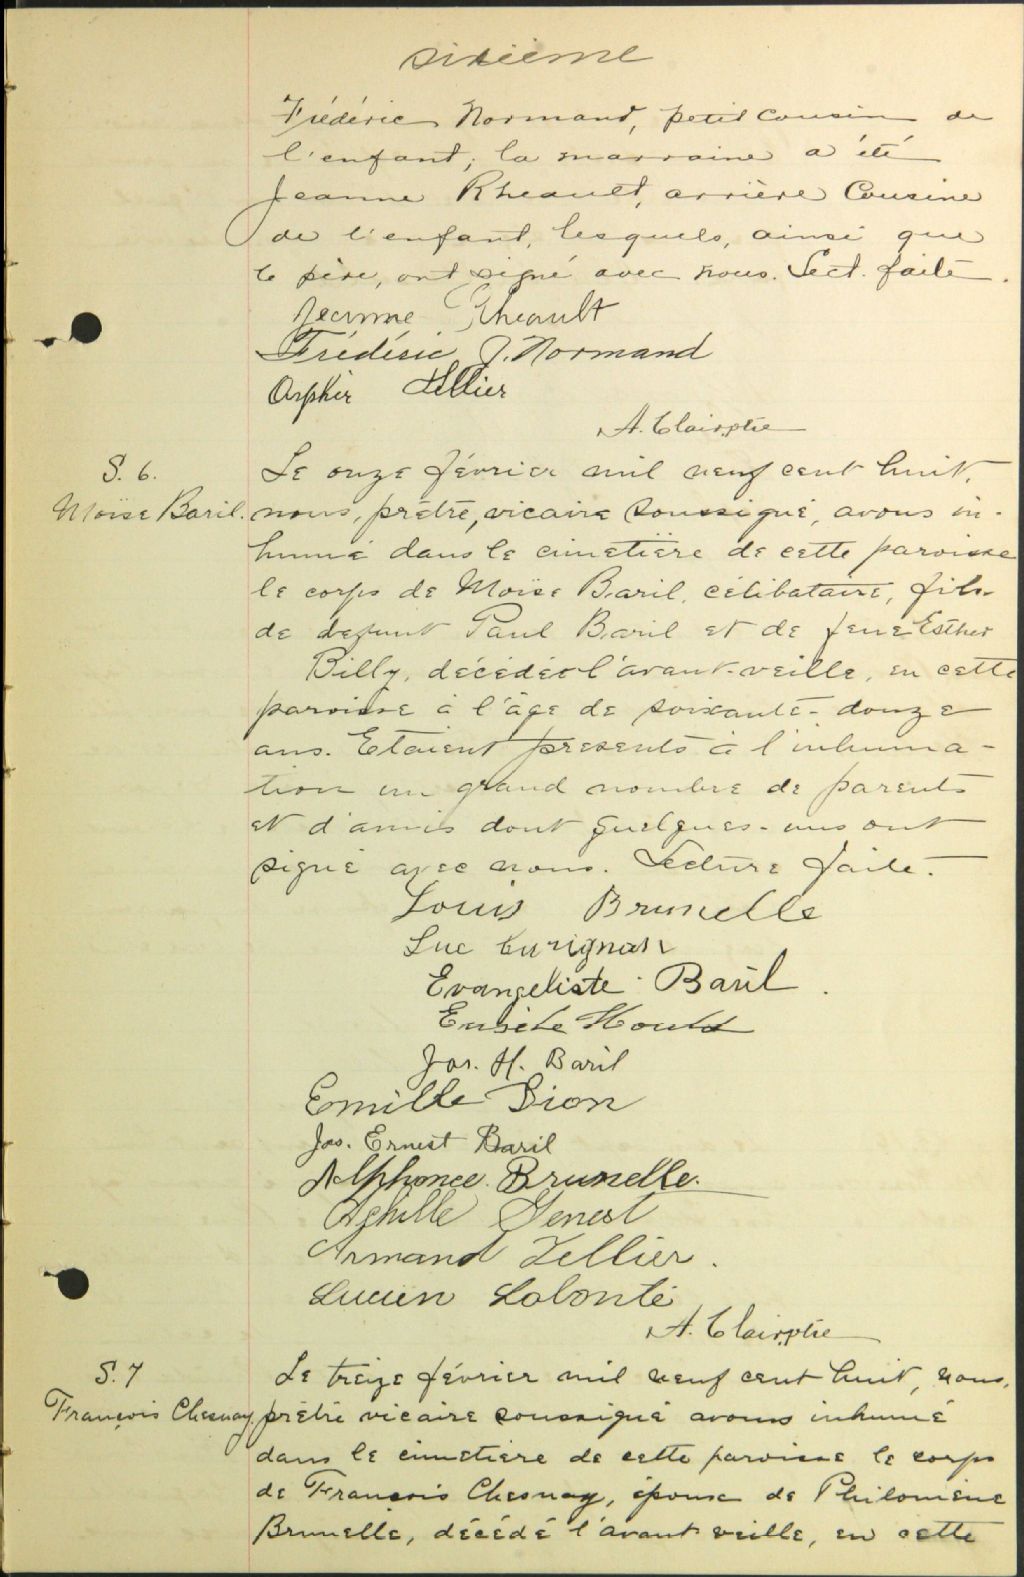 sixième
Frédéric Normand, petit cousin de
l'enfant; la marraine a été
Jeanne Rheault, arrière Cousine
de l'enfant, lesquels, ainsi que
le père, ont signé avec nous. Lect. faite.
Jeanne Rheault
Frédéric J. Normand
Orphir Tellier
A. Clair, ptre
S. 6.
Moïse Baril.
Le onze février mil neuf cent huit,
nous, prêtre, vicaire soussigné, avons in-
humé dans le cimetière de cette paroisse
le corps de Moïse Baril, célibataire, fils
de defunt Paul Baril et de feue Esther
Billy, décédé l'avant-veille, en cette
paroisse à l'âge de soixante-douze
ans. Etaient presents à l'inhuma-
tion un grand nombre de parents
et d'amis dont quelques-uns ont
signé avec nous. Lecture faite.
Louis Brunelle
Luc Turignan
Evangeliste Baril.
Eusèbe Hould
Jos. H. Baril
Emille Dion
Jos. Ernest Baril
Alphonce Brunelle.
Achille Genest
Armand Tellier.
Lucien Labonté
A. Clair, ptre
S. 7
François Chesnay,
Le treize février mil neuf cent huit, nous,
prêtre vicaire soussigné avons inhumé
dans le cimetiere de cette paroisse le corps
de François Chesnay, époux de Philomène
Brunelle, décédé l'avant veille, en cette